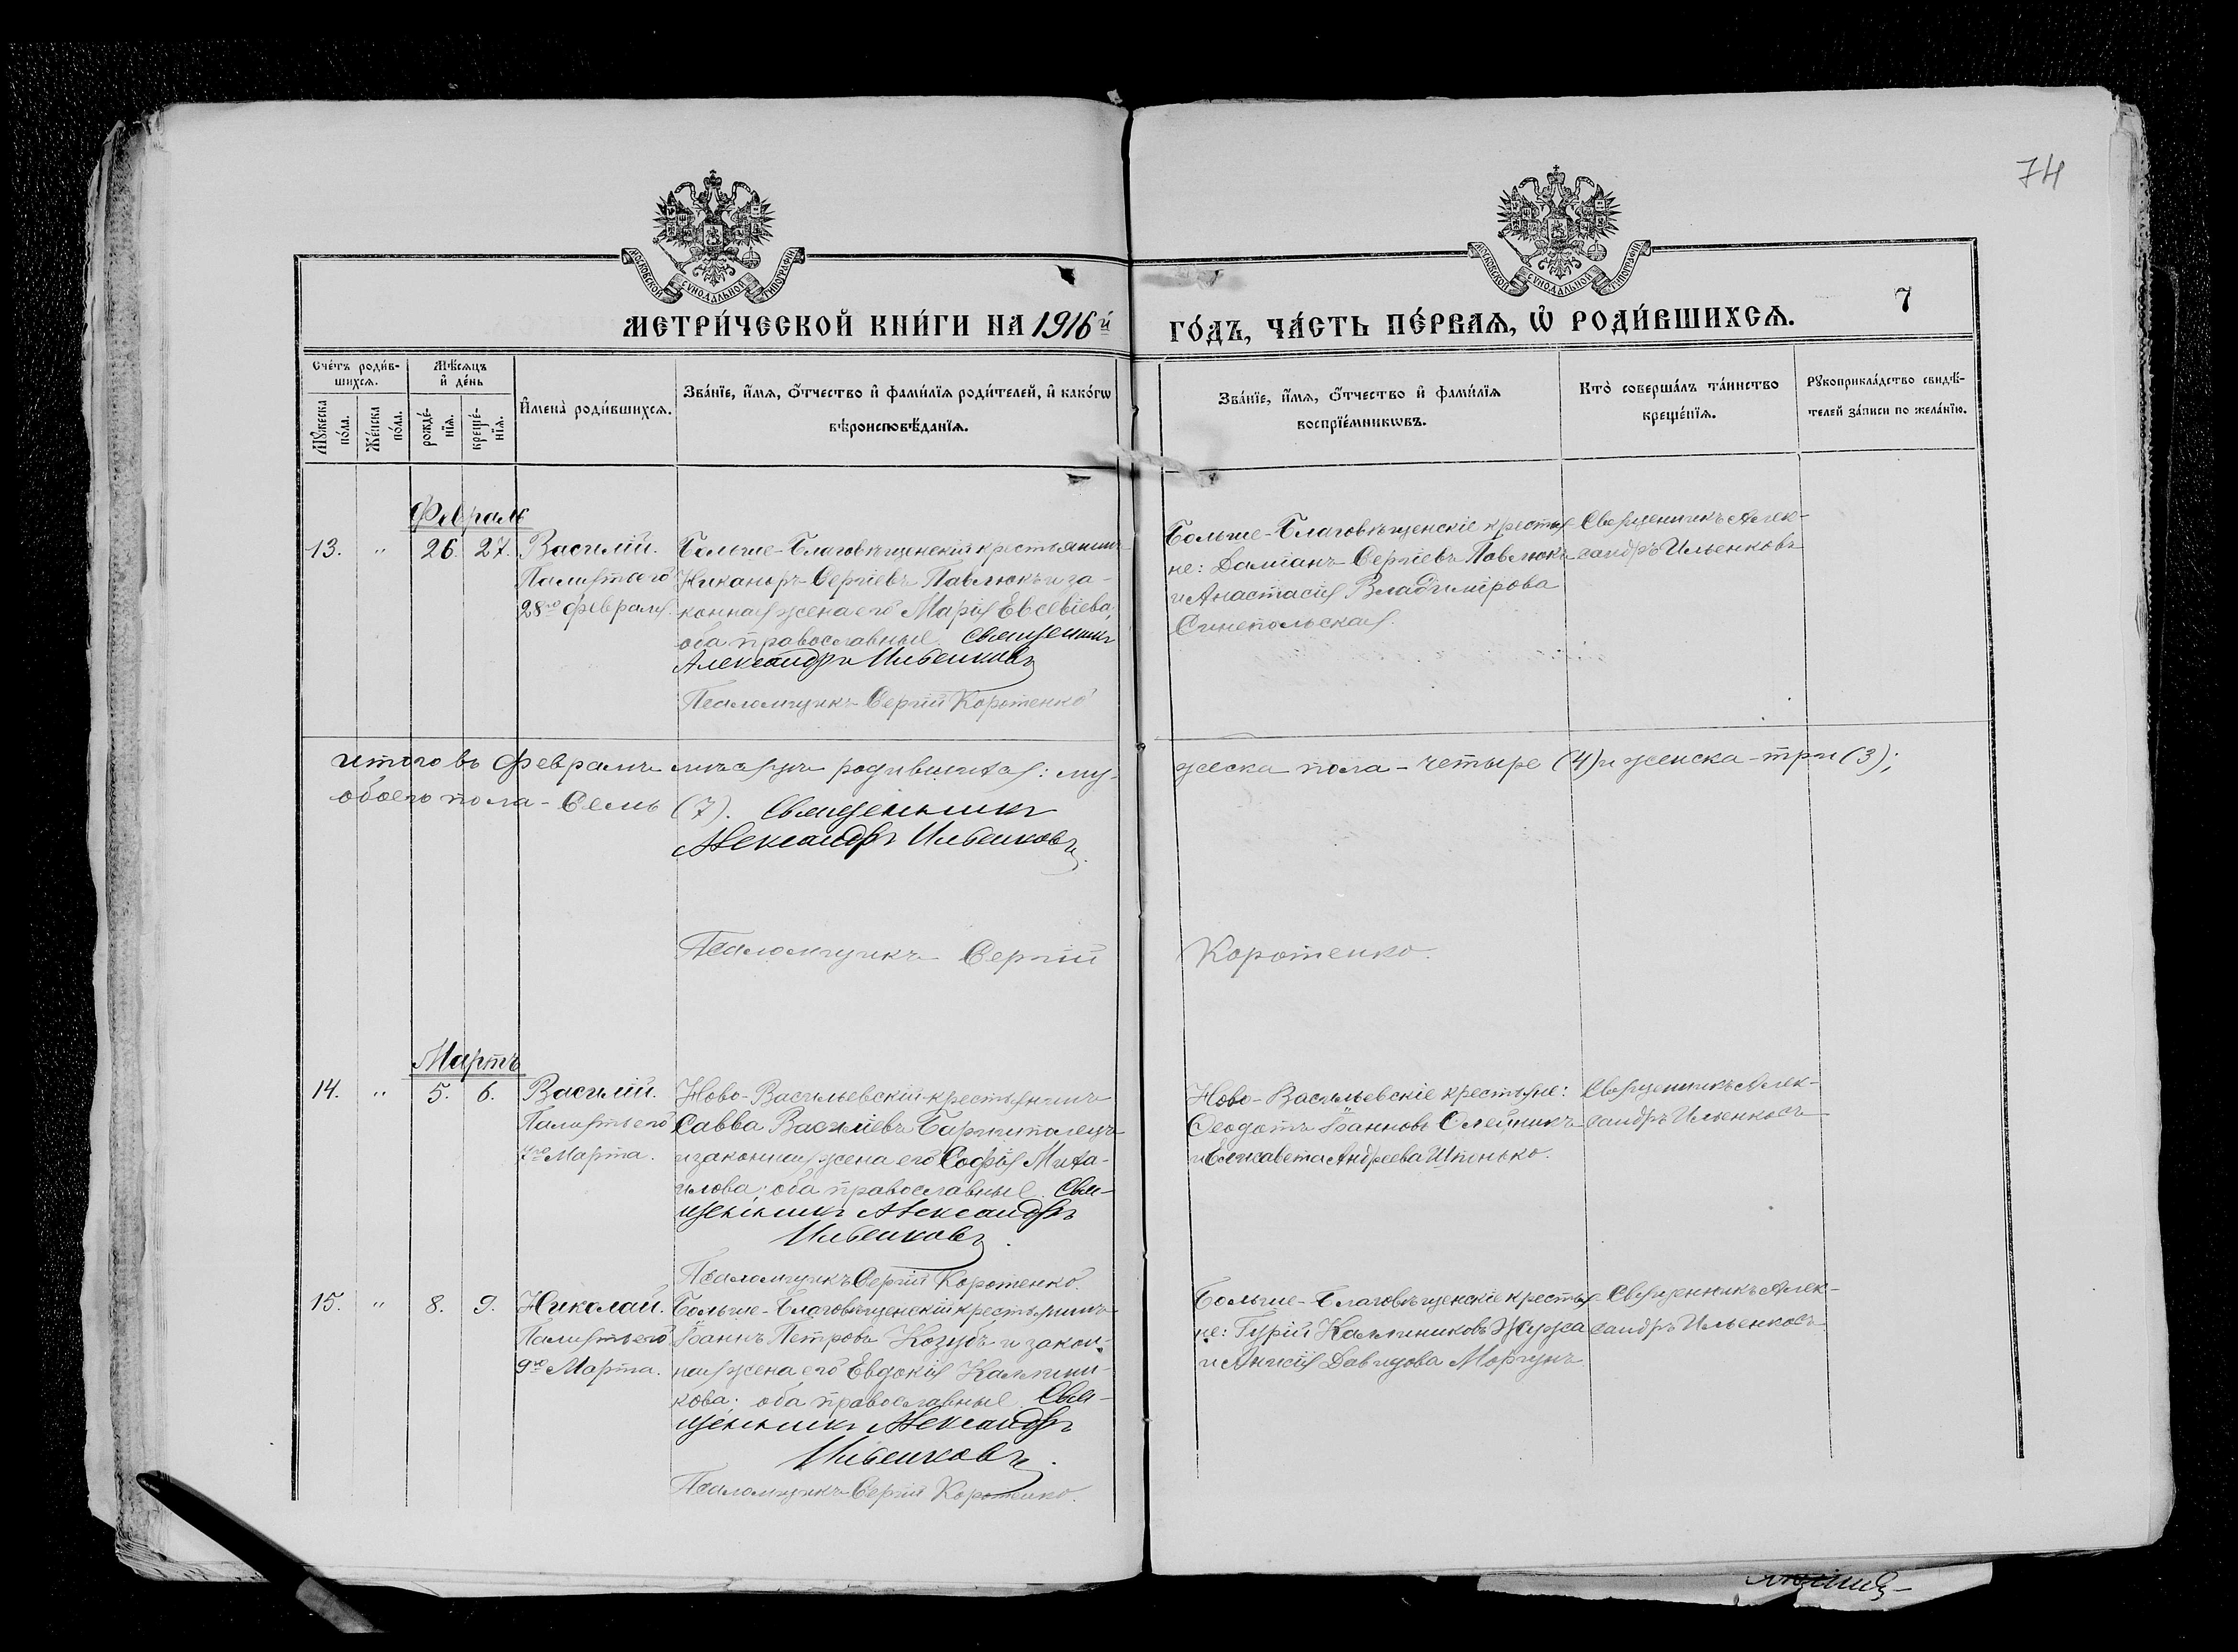 74
МОСКОВСКОЙ СУНОДАЛЬНОЙ ТИПОГРАФІИ
МОСКОВСКОЙ СУНОДАЛЬНОЙ ТИПОГРАФІИ
МЕТРИ́ЧЕСКОЙ КНИ́ГИ НА 1916й
ГО́ДЪ, ЧА́СТЬ ПЕ́РВАЯ, Ѡ РОДИ́ВШИХСЯ.
7
Сче́тъ роди́в-
шихся.
Мѣ́сяцъ
и де́нь
Му́жеска
по́ла.
Же́нска
по́ла.
рожде́-
нїя.
креще́-
нїя.
Имена̀ роди́вшихся.
Зва́нїе, и́мя, о́тчество и фами́лїя роди́телей, и како́гѡ
вѣроисповѣ́данїя.
Зва́нїе, и́мя, о́тчество и фами́лїя
воспрїе́мникѡвъ.
Кто̀ соверша́лъ та́инство
креще́нїя.
Рукоприкла́дство свидѣ́-
телей за́писи по жела́нїю.
Февраль
13. " 26. 27. Василій.
Палиеть его
28го февраля.
Больше-Благовѣщенскій крестьянинъ
Никаноръ Сергіевъ Павлюкъ и за-
конная жена его Марія Евсевіева;
оба православные. Священникъ
Александръ Ильенковъ
Псаломщикъ Сергій Коротенко
Больше-Благовѣщенскіе крестья-
не: Даміанъ Сергіевъ Павлюкъ
и Анастасія Владимірова
Синепольская.
Священникъ Алек-
сандръ Ильенковъ
Итого въ Февралѣ мѣсяцѣ родившихся: му-
жеска пола - четыре (4) и женска - три (3);
обоего пола - Семь (7). Священникъ
Александръ Ильенковъ.
Псаломщикъ Сергій
Коротенко.
Мартъ
14. " 5. 6. Василій.
Марта.
Ново-Васильевскій крестьянинъ
Савва Василіевъ
и законная жена его Софія Миха-
илова; оба православные. Свя-
щенникъ Александръ
Ильенковъ.
Псаломщикъ Сергій Коротенко.
Ново-Васильевскіе крестьяне:
Ѳеодотъ Іоанновъ Олейникъ
и Елисавета Андреева Шпинько.
Священникъ Алек-
сандръ Ильенковъ
15. " 8. 9. Николай.
9го Марта.
Больше-Благовѣщенскій крестьянинъ
Іоаннъ Петровъ Козубъ и закон-
ная жена его Евдокія Каллини-
кова; оба православные. Свя-
щенникъ Александръ
Ильенковъ.
Псаломщикъ Сергій Коротенко.
Больше-Благовѣщенскіе крестья-
не: Гурій Каллиниковъ Журжа
и Анисія Давидова Моргунъ
Священникъ Алек-
сандръ Ильенковъ